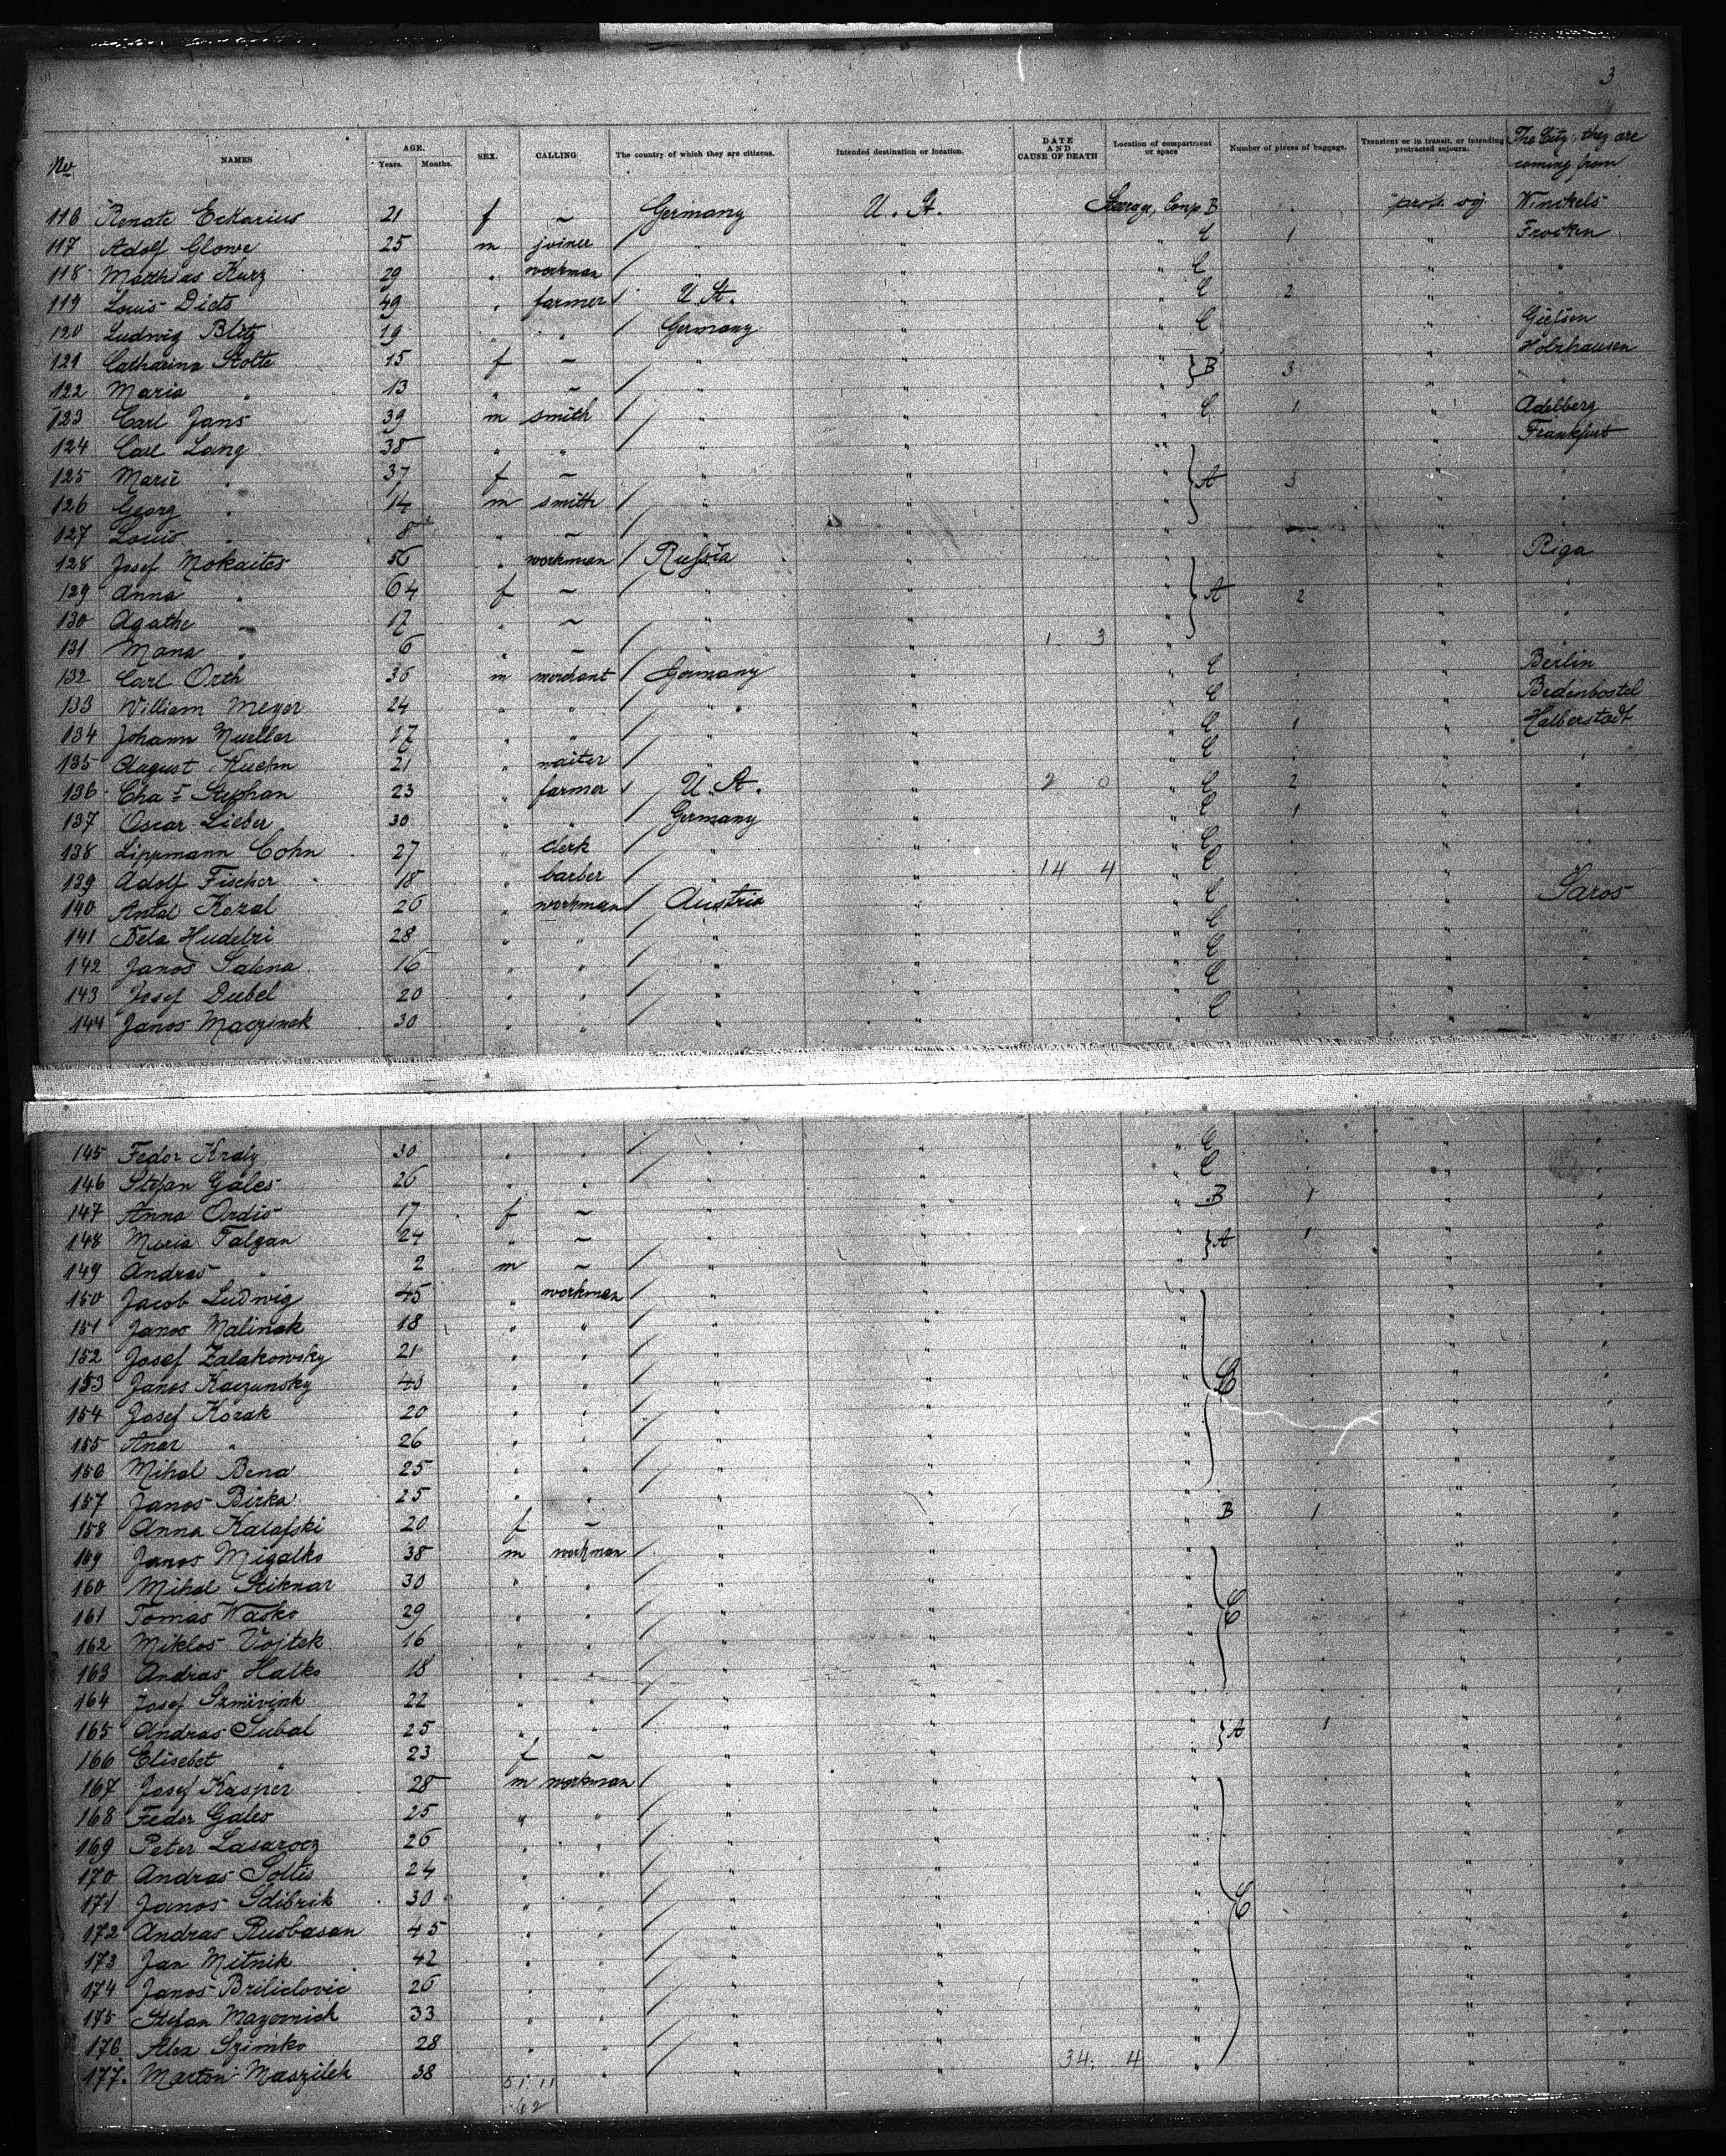 3
No NAMES AGE. Years. Months. SEX. CALLING The country of which they are citizens. Intended destination or location. DATE AND CAUSE OF DEATH Location of compartment or space Number of pieces of baggage. Transient or in transit, or intending protracted sojourn. The City, they are coming from
116 Renate Eckarius 21 f ~ Germany U. St. Steerage, Comp. B " prot. soj Winckels
117 Adolf Glowe 25 m joiner / " " " C 1 " Frocken
118 Matthias Kurz 29 " workman / " " " C " "
119 Louis Diets 49 " farmer / U. St. " " C 2 " "
120 Ludwig Blitz 19 " " / Germany " " C " Giefsen
121 Catharina Stolte 15 f ~ " " " } B 3 " Holzhausen
122 Maria " 13 " ~ / " " " " "
123 Carl Jans 39 m smith / " " " C 1 " Adelberg
124 Carl Lang 38 " " / " " " " Frankfurt
125 Marie " 37 f ~ " " " } A 3 " "
126 Georg " 14 m smith / " " " " "
127 Louis " 8 " ~ / " " " " "
128 Josef Mokaites 56 " workman / Rufsia " " " Riga
129 Anna " 64 f ~ / " " " } A 2 " "
130 Agathe " 17 " ~ " " " " "
131 Mana " 6 " ~ / " " 1 3 " " "
132 Carl Orth 36 m merchant / Germany " " C " Berlin
133 William Meyer 24 " " " " " C " Bedenbostel
134 Johann Mueller 17 " " / " " " C 1 " Halberstadt
135 August Kuehn 21 " waiter / " " " C " "
136 Chas Stephan 23 " farmer / U. St. " 2 0 " C 2 " "
137 Oscar Lieber 30 " " / Germany " " C 1 " "
138 Lippmann Cohn 27 " clerk " " " C " "
139 Adolf Fischer 18 " barber / " " 14 4 " C " "
140 Antal Kozal 26 " workman / Austria " " C " Saros
141 Bela Hudelri 28 " " / " " " C " "
142 Janos Salena 16 " " / " " " C " "
143 Josef Dubel 20 " " / " " " C " "
144 Janos Maczinak 30 " " / " " " C " "
145 Fedor Kraly 30 " " / " " " C " "
146 Stefan Gales 26 " " / " " " C " "
147 Anna Ordis 17 f ~ " " " B 1 " "
148 Maria Falgan 24 " ~ " " " } A 1 " "
149 Andras " 2 m ~ / " " " " "
150 Jacob Ludwig 45 " workman / " " " " "
151 Janos Malinak 18 " " / " " " " "
152 Josef Zalakowsky 21 " " / " " " " "
153 Janos Kaczunsky 40 " " / " " " } C " "
154 Josef Kozak 20 " " / " " " " "
155 Anar " 26 " " / " " " " "
156 Mihal Bena 25 " " / " " " " "
157 Janos Birka 25 " " / " " " " "
158 Anna Kalafski 20 f ~ " " B 1 " "
159 Janos Migalko 38 m workman / " " " " "
160 Mihal Stiknar 30 " " / " " " " "
161 Tomas Wasko 29 " " / " " " } C " "
162 Miklos Vojtek 16 " " / " " " " "
163 Andras Halko 18 " " / " " " " "
164 Josef Szmivink 22 " " / " " " " "
165 Andras Subal 25 " " / " " " } A 1 " "
166 Elisebet " 23 f ~ " " " " "
167 Josef Kasper 28 m workman / " " " " "
168 Fedor Gales 25 " " / " " " " "
169 Peter Lasarocz 26 " " / " " " " "
170 Andras Soltis 24 " " / " " " " "
171 Janos Sdibrik 30 " " / " " " } C " "
172 Andras Rusbasan 45 " " / " " " " "
173 Jan Mitnik 42 " " / " " " " "
174 Janos Briliclovic 26 " " / " " " " "
175 Stefan Mayernick 33 " " / " " " " "
176 Alex Szimko 28 " " / " " " " "
177. Marton Maszilek 38 " " / " " 34. 4 " " "
51 11
62